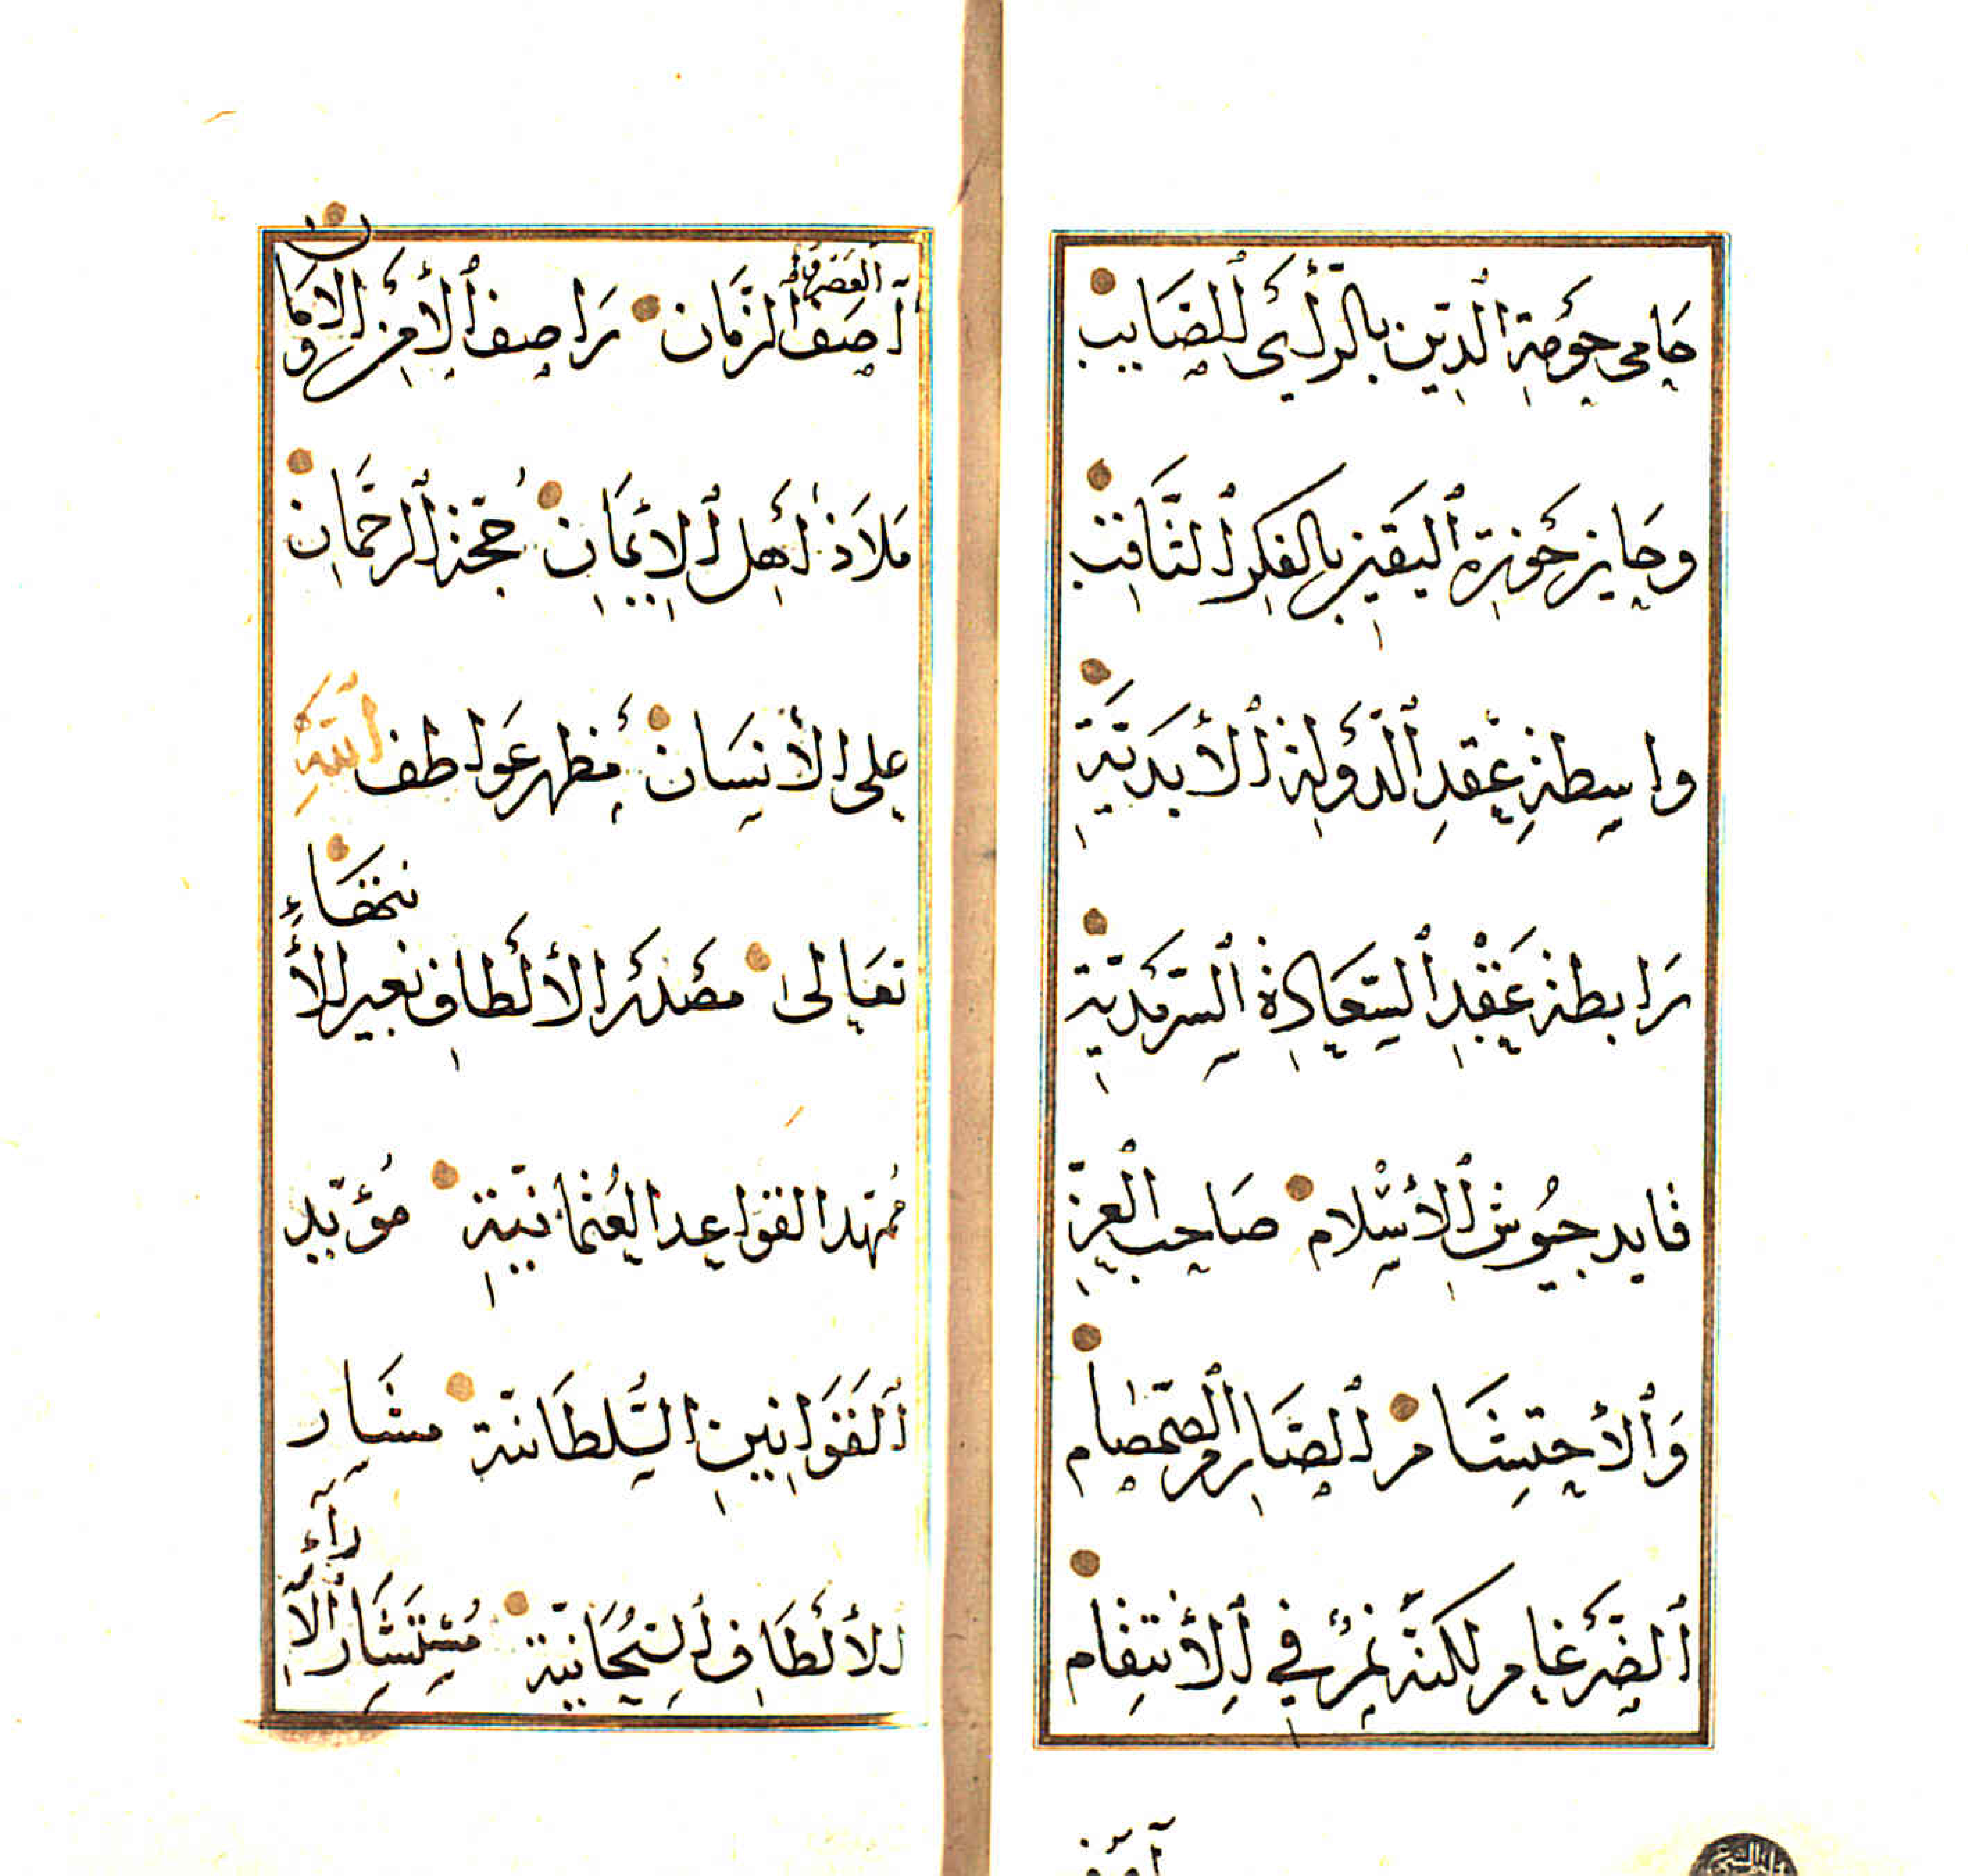 حَامِى حَوْمَةِ الدِّينِ بِالرَّأْىِ الصَّايِبِ
وحَايز حَوزَةِ اليَقينِ بِالفِكرِ الثَّاقِبِ
واسِطةِ عِقدِ الدَّولَةِ الأَبَدِيَّةِ
رَابطة عَقْدِ السَّعَادَةِ السَّرمَدِيَّةِ
قايد جيُوشِ الأسْلام صَاحِب العِزِّ
وَالأحتِشَام الصَّارِم الصَّمصَام
الضَّرغَام لكنَّهُ نَمِرٌ في الِأنتِقام
آصَف
آصَف العَصْرِ وَالزَّمان رَاصِف الأَمْنِ والامَان
مَلاَذ أَهلِ الِايمَانِ حُجّة الرحمَان
على الأنسَان مَظهر عَواطف اللهِ
تعَالى مَصْدَر الألطافِ بغير الأَ
نتهَاءِ
مُمهّد القوَاعِد العُثمانيّةِ مُؤيّد
القَوَانينِ السُّلطَانيّة مشَار
الألطَافِ السُبحَانيّة مُستَشَار الآ
رآءِ